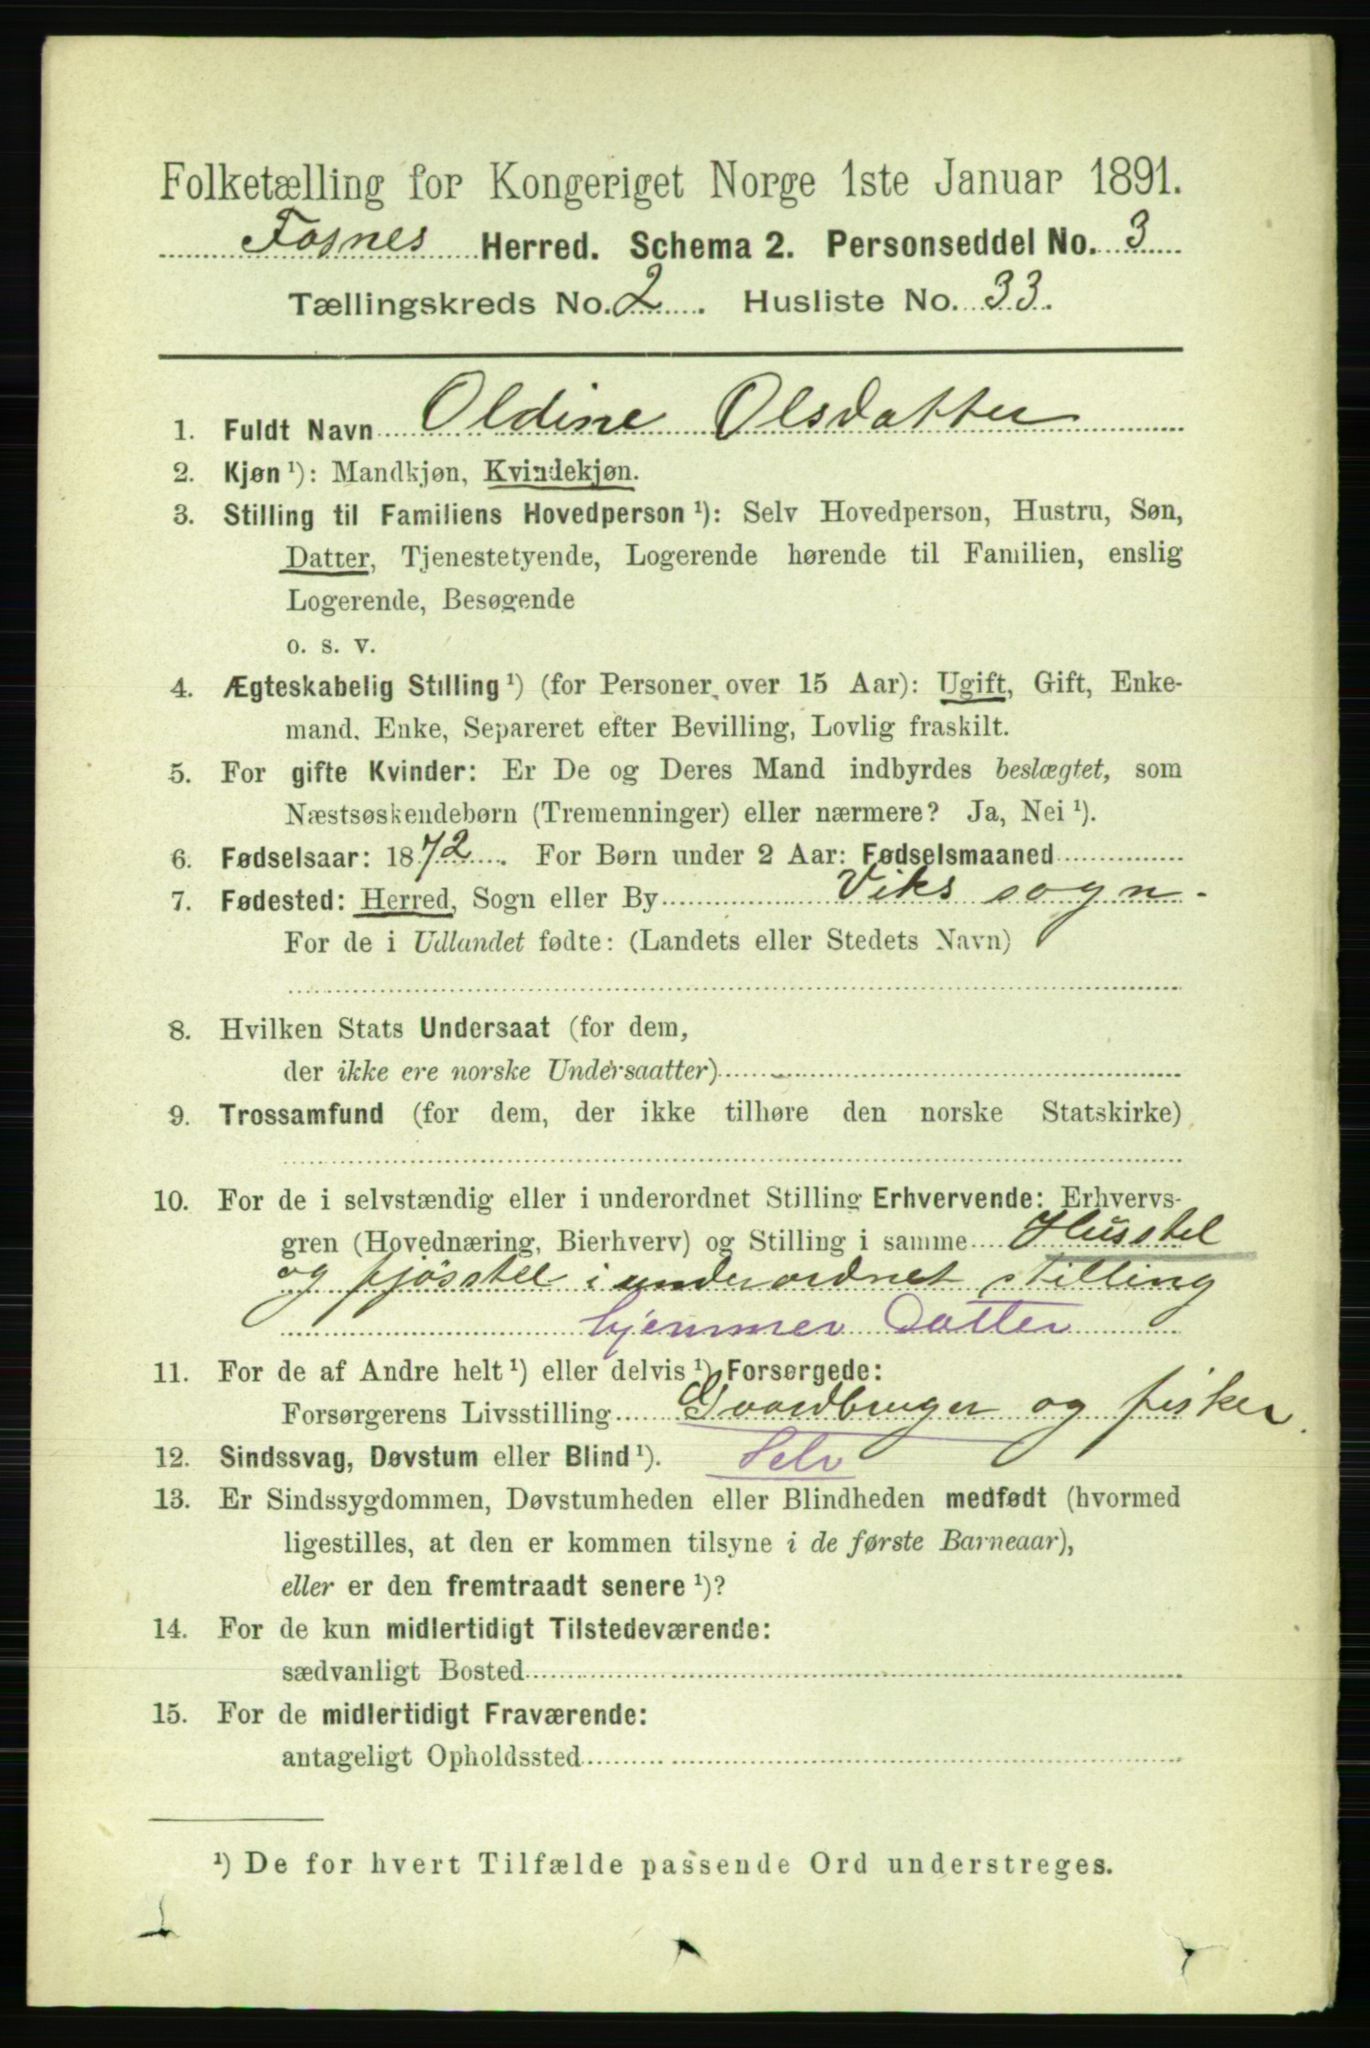 Folketælling for Kongeriget Norge 1ste Januar 1891.
Fosnes Herred. Schema 2. Personseddel No. 3
Tællingskreds No. 2. Husliste No. 33.
1. Fuldt Navn Oldine Olsdatter
2. Kjøn ¹): Mandkjøn, Kvindekjøn.
3. Stilling til Familiens Hovedperson ¹): Selv Hovedperson, Hustru, Søn,
Datter, Tjenestetyende, Logerende hørende til Familien, enslig
Logerende, Besøgende
o. s. v.
4. Ægteskabelig Stilling ¹) (for Personer over 15 Aar): Ugift, Gift, Enke-
mand, Enke, Separeret efter Bevilling, Lovlig fraskilt.
5. For gifte Kvinder: Er De og Deres Mand indbyrdes beslægtet, som
Næstsøskendebørn (Tremenninger) eller nærmere? Ja, Nei ¹).
6. Fødselsaar: 1872. For Børn under 2 Aar: Fødselsmaaned
7. Fødested: Herred, Sogn eller By Viks sogn.
For de i Udlandet fødte: (Landets eller Stedets Navn)
8. Hvilken Stats Undersaat (for dem,
der ikke ere norske Undersaatter)
9. Trossamfund (for dem, der ikke tilhøre den norske Statskirke)
10. For de i selvstændig eller i underordnet Stilling Erhvervende: Erhvervs-
gren (Hovednæring, Bierhverv) og Stilling i samme Husstel
og fjösstel i underordnet stilling
hjemmev Datter
11. For de af Andre helt ¹) eller delvis ¹) Forsørgede:
Forsørgerens Livsstilling Gaardbruger og fisker.
12. Sindssvag, Døvstum eller Blind ¹). Selv
13. Er Sindssygdommen, Døvstumheden eller Blindheden medfødt (hvormed
ligestilles, at den er kommen tilsyne i de første Barneaar),
eller er den fremtraadt senere ¹)?
14. For de kun midlertidigt Tilstedeværende:
sædvanligt Bosted
15. For de midlertidigt Fraværende:
antageligt Opholdssted
¹) De for hvert Tilfælde passende Ord understreges.